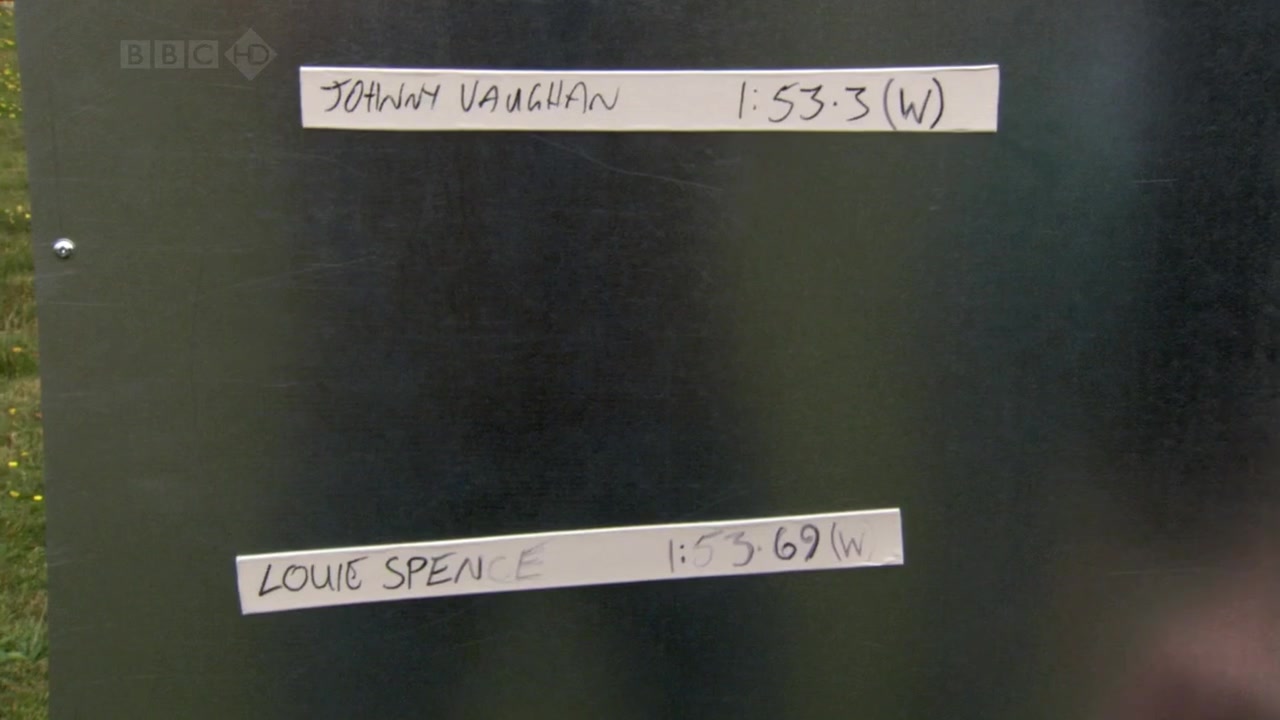 BBC HD
JOHNNY VAUGHAN 1:53.3 (W)
LOUIE SPENCE 1:53.69 (W